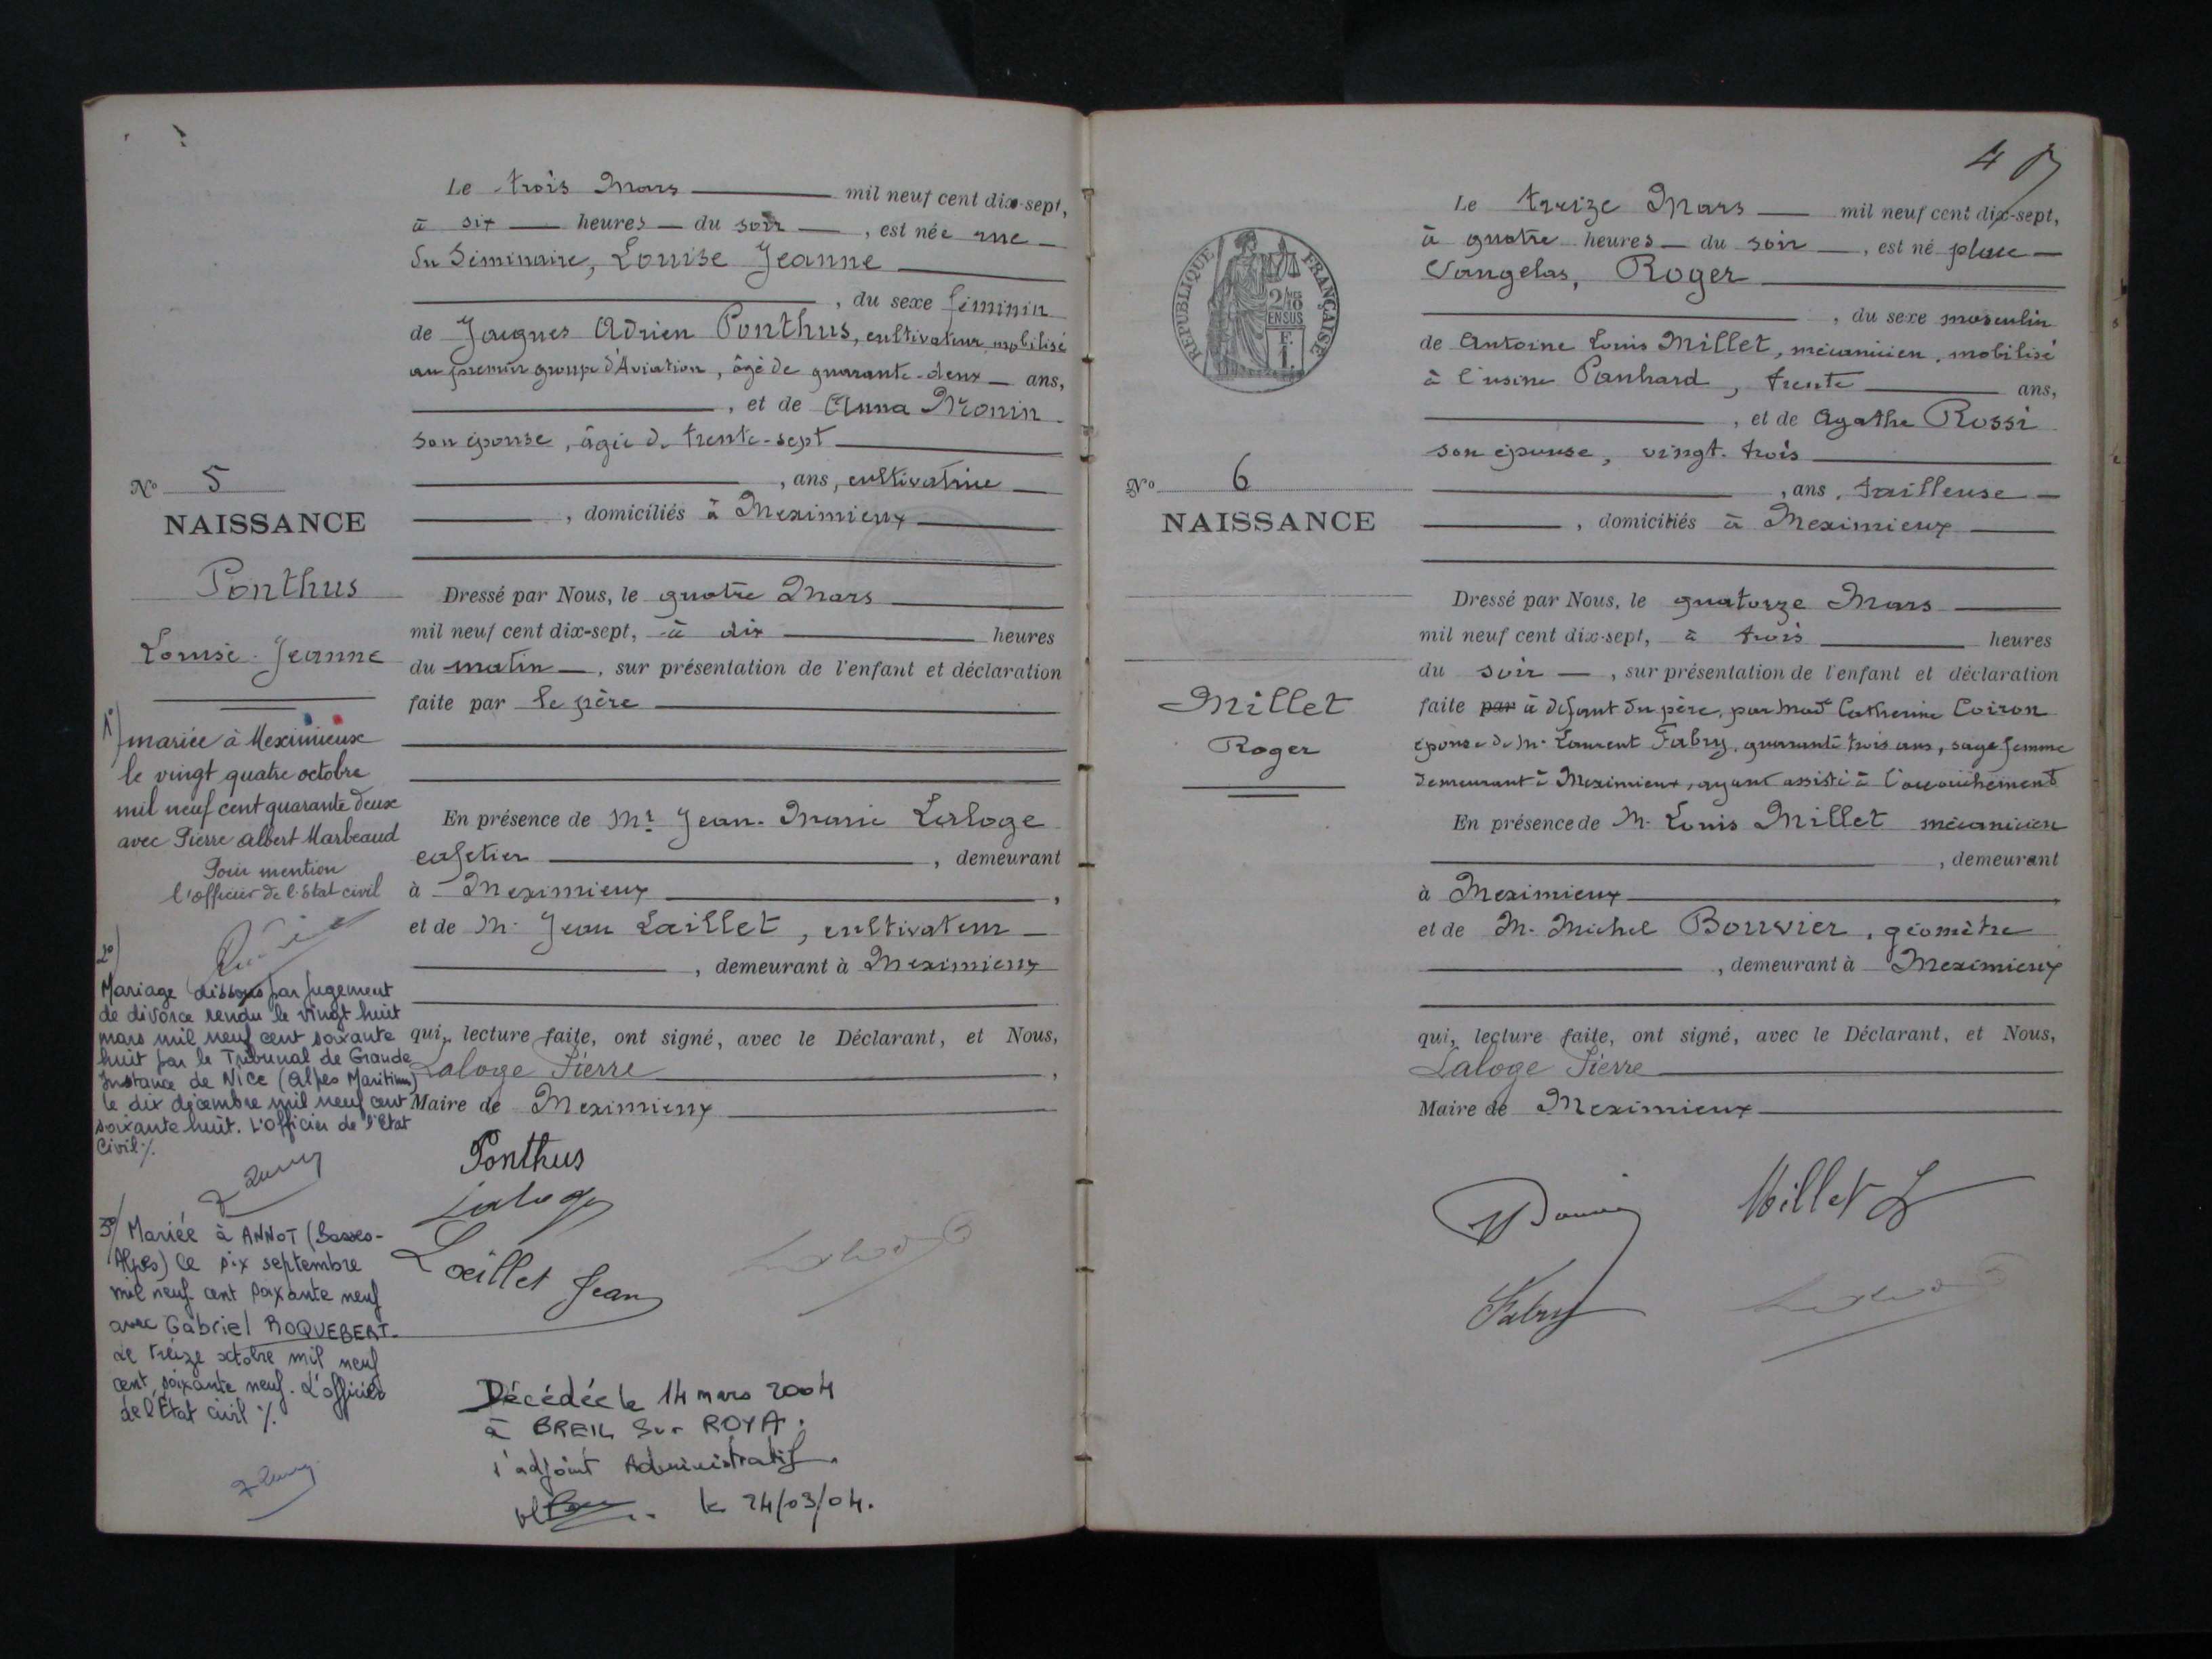 Le trois Mars mil neuf cent dix-sept,
à six heures du soir, est née rue
du Séminaire, Louise Jeanne
, du sexe féminin
de Jacques Adrien Ponthus, cultivateur mobilisé
au premier groupe d'Aviation, âgé de quarante-deux ans,
, et de Anna Monin
son épouse, âgée de trente-sept
, ans, cultivatrice
, domiciliés à Meximieux
Dressé par Nous, le quatre Mars
mil neuf cent dix-sept, à dix heures
du matin, sur présentation de l'enfant et déclaration
faite par le père
En présence de Mr Jean-Marie Laloge
cafetier, demeurant
à Meximieux,
et de M. Jean Laillet, cultivateur
, demeurant à Meximieux
qui, lecture faite, ont signé, avec le Déclarant, et Nous,
Laloge Pierre,
Maire de Meximieux
Ponthus
Laloge
Laillet Jean
Décédée le 14 mars 2004
à BREIL sur ROYA.
l'adjoint Administratif.
le 24/03/04.
No 5
NAISSANCE
Ponthus
Louise Jeanne
1º) mariée à Meximieux
le vingt quatre octobre
mil neuf cent quarante deux
avec Pierre Albert Marbeaud
Pour mention
l'officier de l'état civil
2º)
Mariage dissous par jugement
de divorce rendu le vingt huit
mars mil neuf cent soixante
huit par le Tribunal de Grande
Instance de Nice (Alpes Maritimes)
le dix décembre mil neuf cent
soixante huit. L'officier de l'Etat
Civil %.
3º/ Mariée à ANNOT (Basses-
Alpes) le six septembre
mil neuf cent soixante neuf
avec Gabriel ROQUEBERT.
Le treize octobre mil neuf
cent soixante neuf. L'officier
de l'Etat civil %.
4
RÉPUBLIQUE FRANÇAISE
2/10
EN SUS
F.
1.
No 6
NAISSANCE
Millet
Roger
Le treize Mars mil neuf cent dix-sept,
à quatre heures du soir, est né place
Vaugelas, Roger
, du sexe masculin
de Antoine Louis Millet, mécanicien, mobilisé
à l'usine Panhard, trente ans,
, et de Agathe Rossi
son épouse, vingt-trois
, ans, tailleuse
, domiciliés à Meximieux
Dressé par Nous, le quatorze Mars
mil neuf cent dix-sept, à trois heures
du soir, sur présentation de l'enfant et déclaration
faite par à défaut du père, par Made Catherine Coiron
épouse de Mr Laurent Fabry, quarante trois ans, sage femme
demeurant à Meximieux, ayant assisté à l'accouchement
En présence de M. Louis Millet mécanicien
, demeurant
à Meximieux
et de M. Michel Bouvier, géomètre
, demeurant à Meximieux
qui, lecture faite, ont signé, avec le Déclarant, et Nous,
Laloge Pierre
Maire de Meximieux
Millet L
Fabry